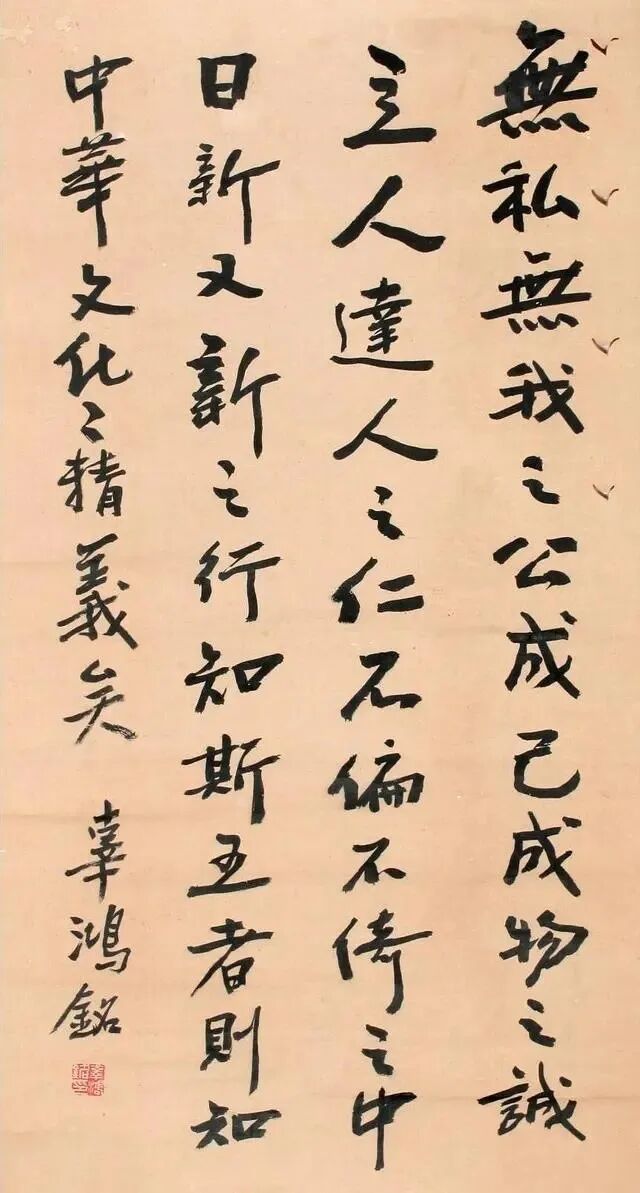 無私無我之公成己成物之誠
立人達人之仁不偏不倚之中
日新又新之行知斯五者則知
中華文化之精義矣
辜鴻銘